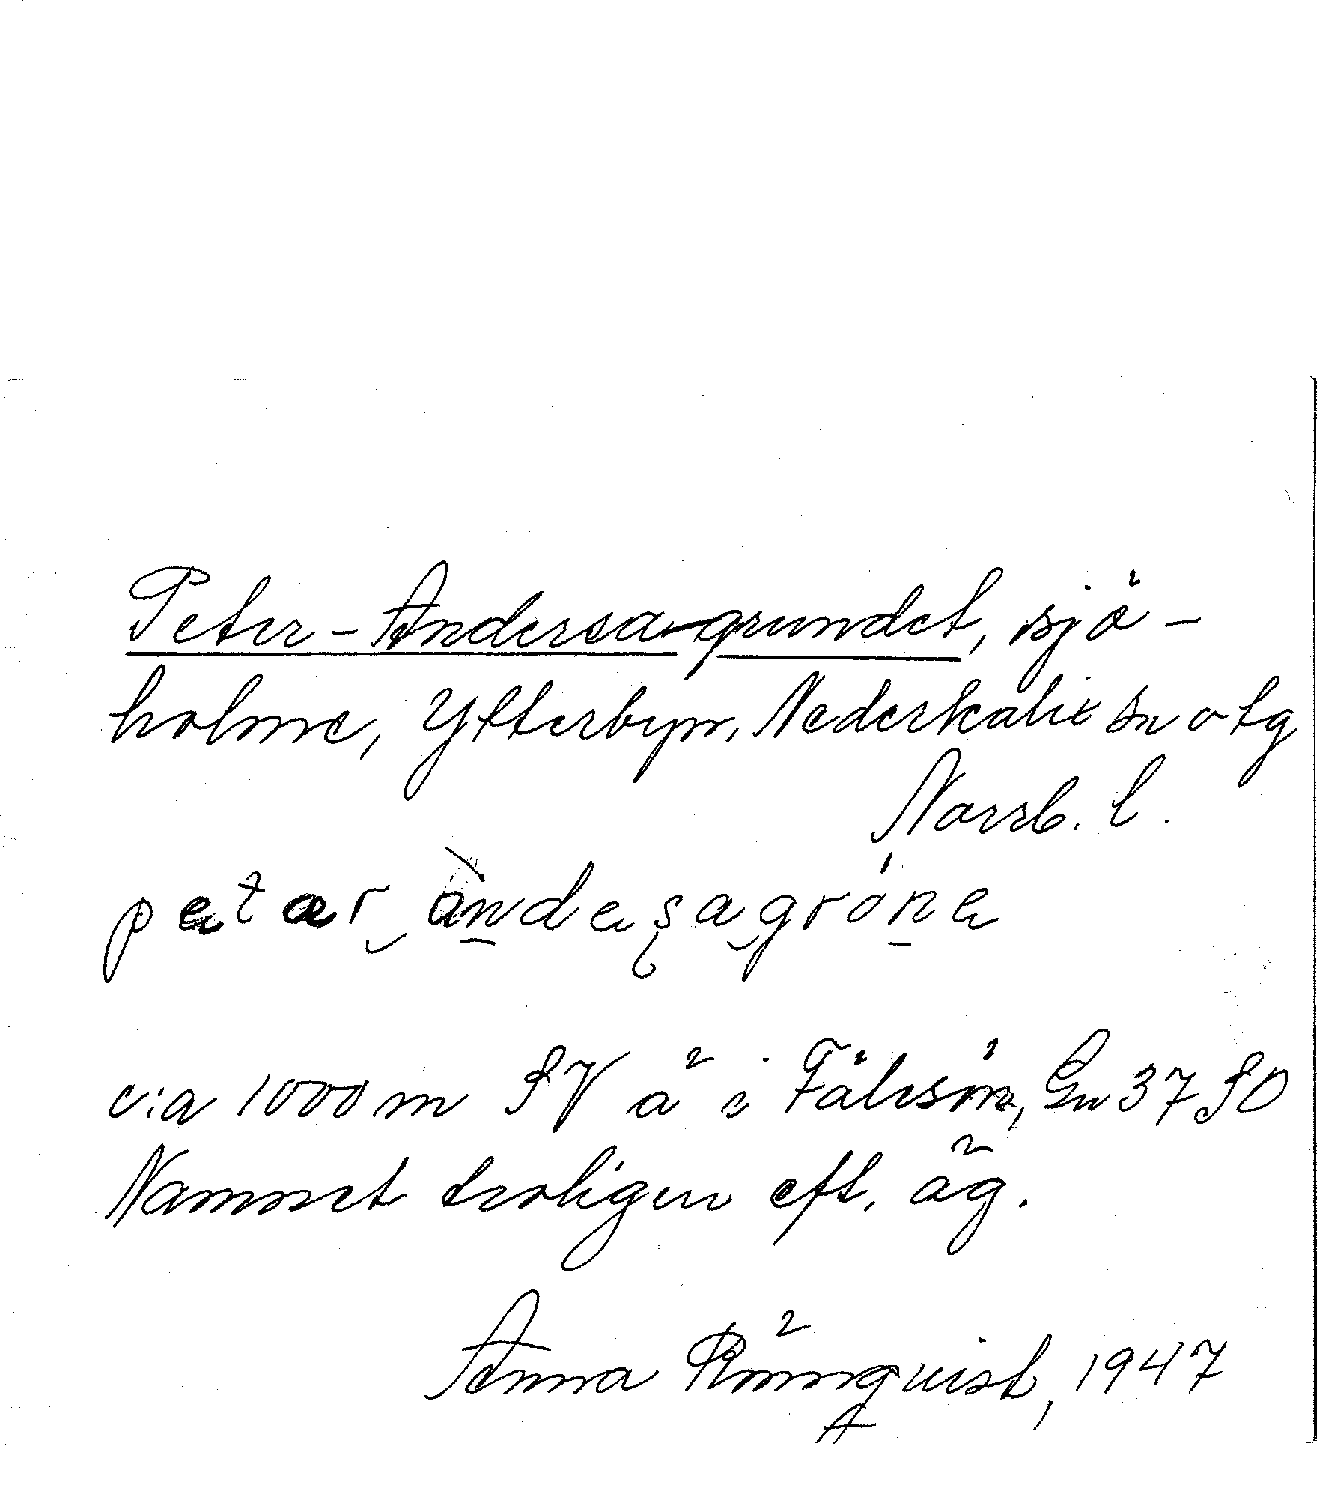 Peter-Andersa-grundet, sjö-
holme, Ytterbyn, Nederkalix sn o tg
Norrb. l.
petær àndeʂagróne
c:a 1000 m SV å i Fälesön, Gn 37 SO
Namnet troligen eft. äg.
Anna Rönnquist, 1947